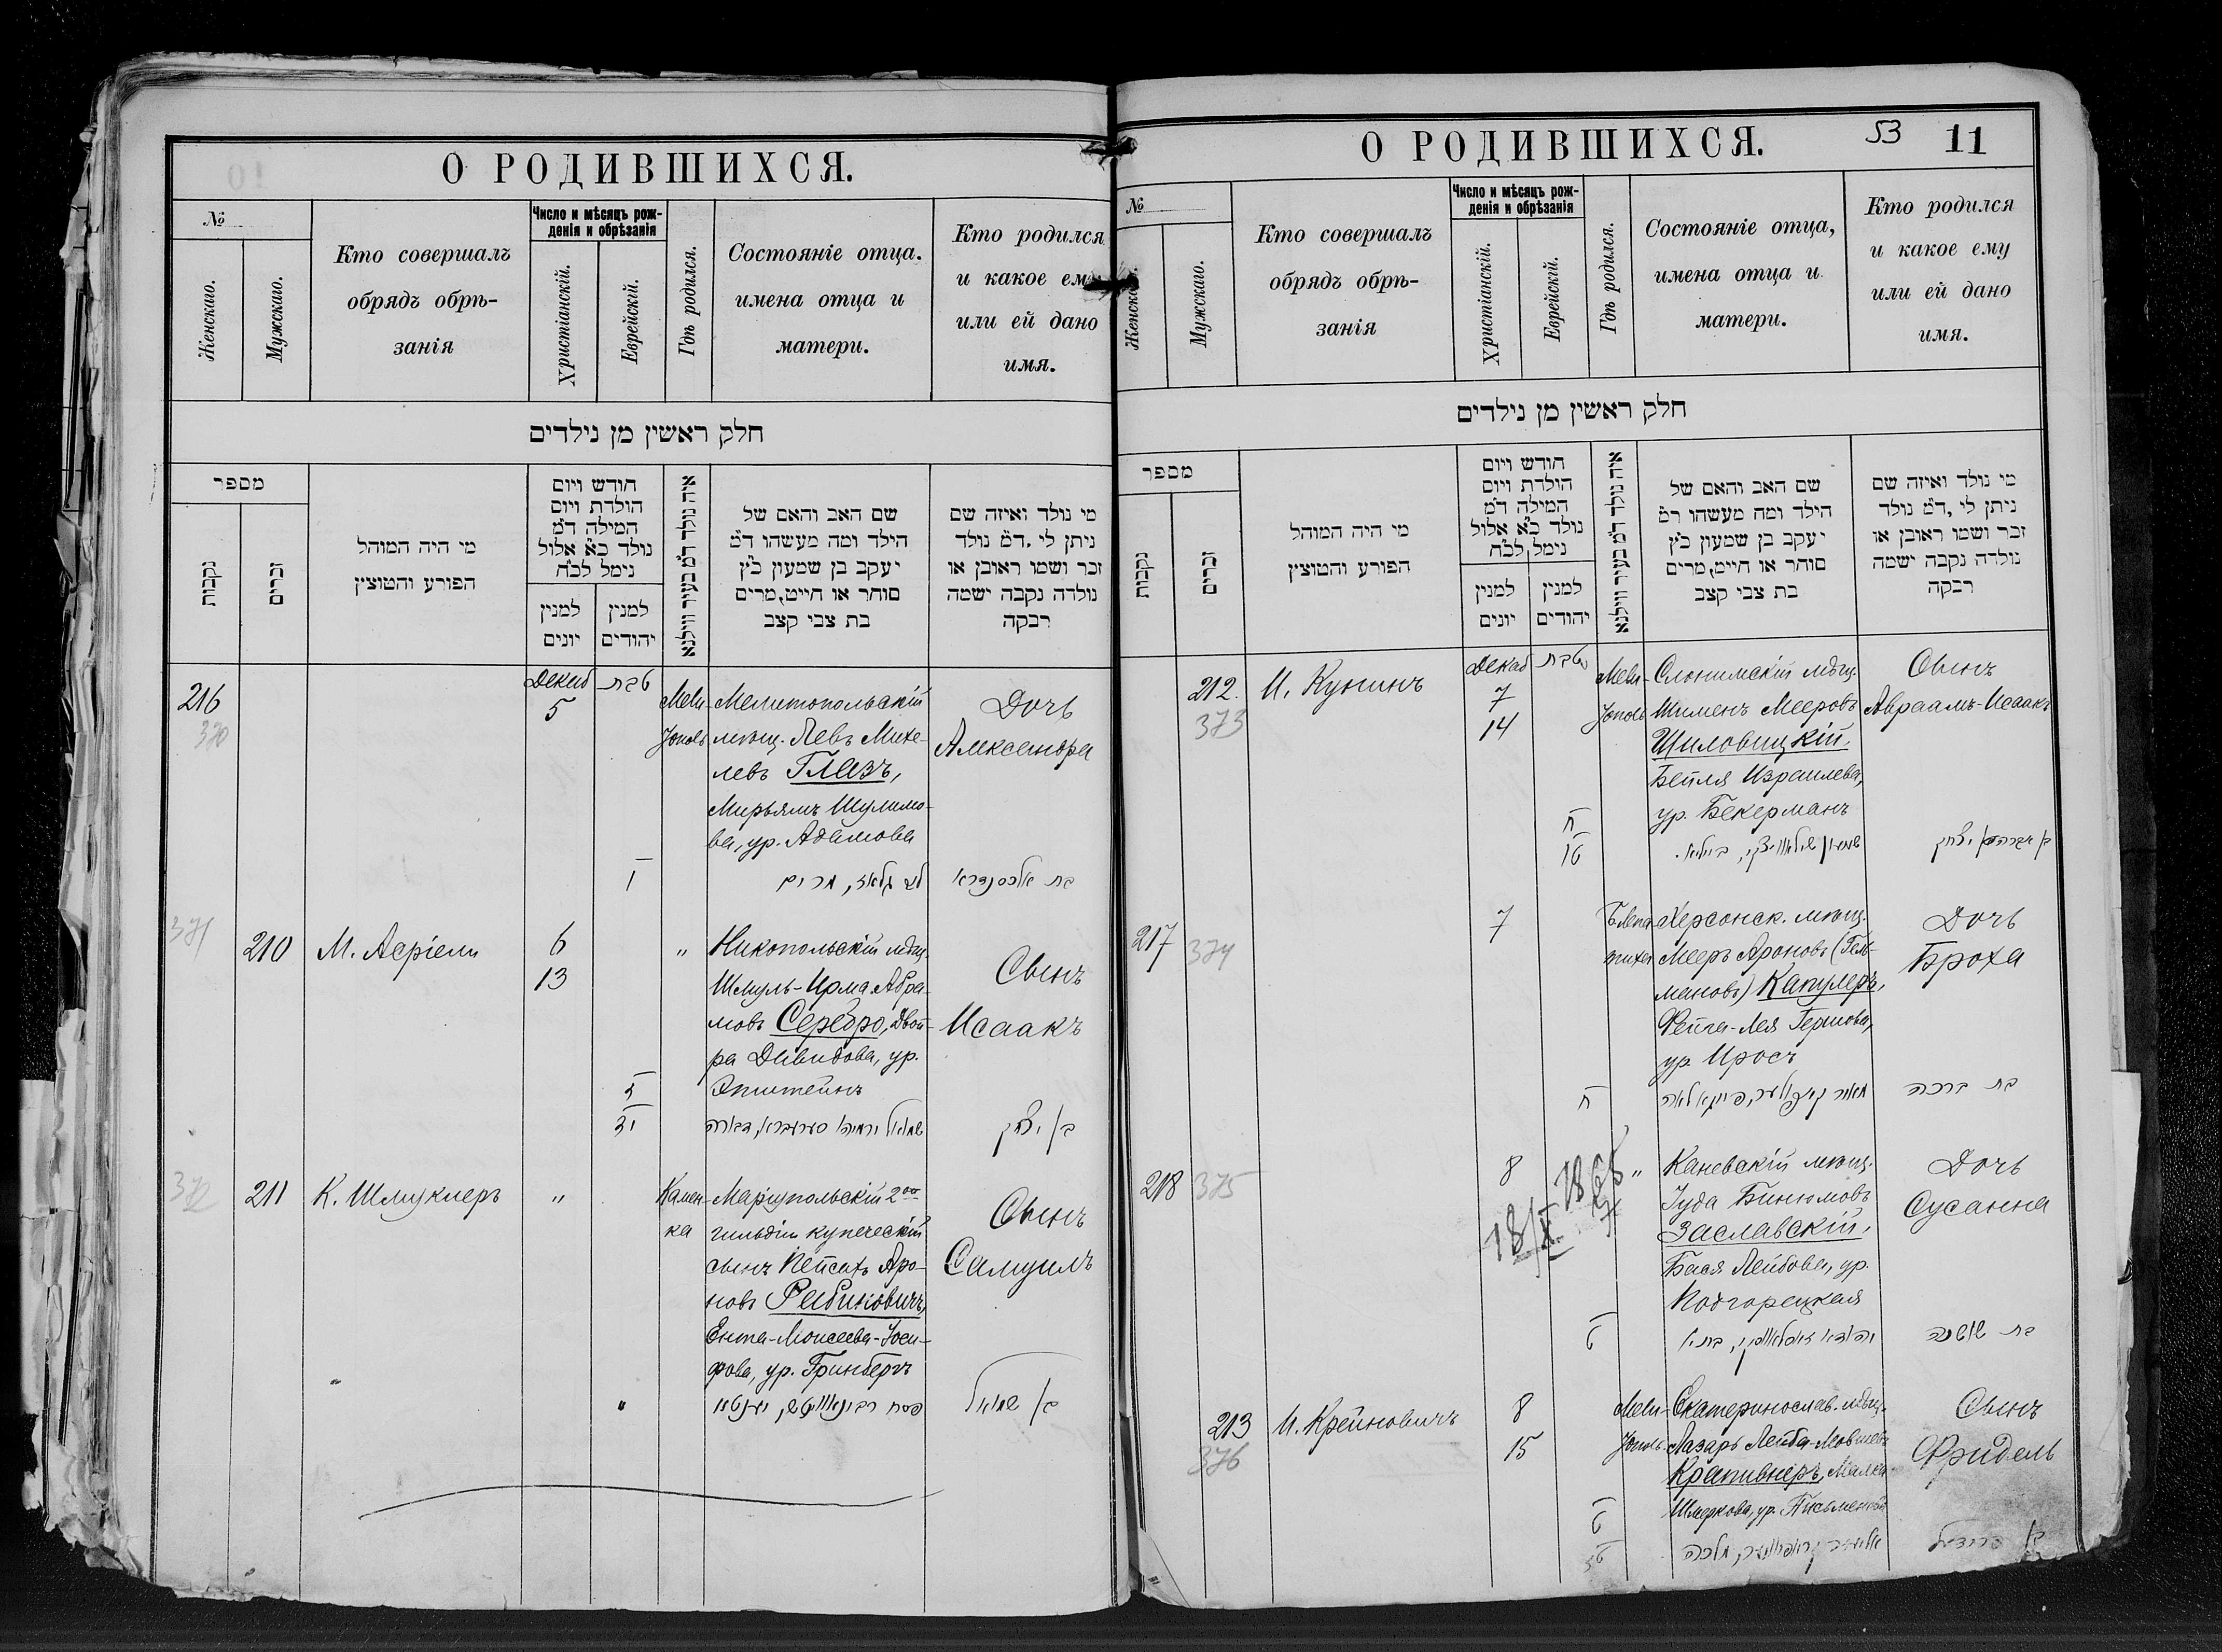 О РОДИВШИХСЯ.
№
Женскаго.
Мужскаго.
Кто совершалъ
обрядъ обрѣ-
занія
Число и мѣсяцъ рож-
денія и обрѣзанія
Христіанскій.
Еврейскій.
Гдѣ родился.
Состояніе отца.
имена отца и
матери.
Кто родился
и какое ем
или ей дано
имя.
חלק ראשין מן נילדים
מספר
נקבות
זכרים
מי היה המוהל
הפורע והטוצין
חודש ויום
הולדת ויום
המילה ד״מ
נולד כ״א אלול
נימל לכ״ח
למנין
יונים
למנין
יהודים
איה נולד ד״מ בעיר ווילנא
שם האב והאם של
הילד ומה מעשהו ד״מ
יעקב בן שמעון כ״ץ
סוחר או חייט,מרים
בת צבי קצב
מי נולד ואיזה שם
ניתן לי ,ד״מ נולד
זכר ושמו ראובן או
נולדה נקבה ישמה
רבקה
216
370
Декаб
5
טבת
ו
Мели-
тополь
Мелитопольскій
мѣщ. Левъ Михе-
левъ Глазъ,
Мирьямъ Шулимо-
ва, ур. Адамова
לב גלאז, מרים
Дочь
Александра
בת אלכסנדרא
371
210
М. Асріели
6
13
ז
יד
"
Никопольскій мѣщ.
Шмуль-Ирма Абра-
мовъ Серебро, Двой-
ра Давидова, ур.
Эпштейнъ
שמואל ירמיהו סערעברא, דבורה
Сынъ
Исаакъ
בן יצחק
372
211
К. Шмуклеръ
"
"
Камен-
ка
Маріупольскій 2ой
гильдіи купеческій
сынъ Пейсахъ Аро-
новъ Рабиновичъ,
Ента-Моисеева-Іоси-
фова, ур. Гринбергъ
פסח רבינאוויטש, יענטא
Сынъ
Самуилъ
בן שמואל
О РОДИВШИХСЯ.
53
11
№
Женско
Мужскаго.
Кто совершалъ
обрядъ обрѣ-
занія
Число и мѣсяцъ рож-
денія и обрѣзанія
Христіанскій.
Еврейскій.
Гдѣ родился.
Состояніе отца,
имена отца и
матери.
Кто родился
и какое ему
или ей дано
имя.
חלק ראשין מן נילדים
מספר
נקבות
זכרים
מי היה המוהל
הפורע והטוצין
חודש ויום
הולדת ויום
המילה ד״מ
נולד כ״א אלול
נימל לכ״ח
למנין
יונים
למנין
יהודים
איה נולד ד״מ בעיר ווילנא
שם האב והאם של
הילד ומה מעשהו ר״מ
יעקב בן שמעון כ״ץ
סוחר או חייט,מרים
בת צבי קצב
מי נולד ואיזה שם
ניתן לי ,ד״מ נולד
זכר ושמו ראובן או
נולדה נקבה ישמה
רבקה
212.
373
И. Кунинъ
Декаб
7
14
טבת
ח
טו
Мели-
тополь
Слонимскій мѣщ.
Шименъ Мееровъ
Шиловицкій,
Бейля Израилева,
ур. Бекерманъ
שמעון שילאוויצקי, ביילא.
Сынъ
Авраамъ-Исаакъ
בן אברהם יצחק
217
374
7
ח
Херсонск. мѣщ.
Мееръ Ароновъ (Гель-
мановъ) Капулеръ,
Фейга-Лея Гершова,
ур. Иросъ
מאיר קאפולער, פייגא לאה
Дочь
Броха
בת ברכה
218
375
8
ט
18/X 1865
"
Каневскій мѣщ.
Іуда Бинюмовъ
Заславскій,
Бася Лейбова, ур.
Подгорецкая
יהודא זאסלאווסקי, בתיא
Дочь
Сусанна
בת שושנה
213
376
И. Крейновичъ
8
15
ט
טז
Мели-
тополь
Екатеринослав. мѣщ.
Лазарь Лейба-Мовшевъ
Крапивнеръ, Малка
Шмеркова, ур. Письменов
אליעזר קראפיוונער, מלכה
Сынъ
Фридель
בן פרידיל